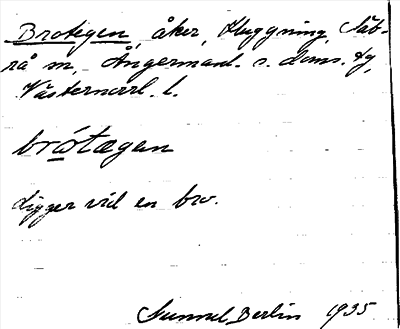 Brotegen, åker, Huggning, Säb-
rå sn, Ångermanl. s. doms. dg,
Västernorrl. l.
brotægan
Ligger vid en bro.
Gunnel Berlin 1935